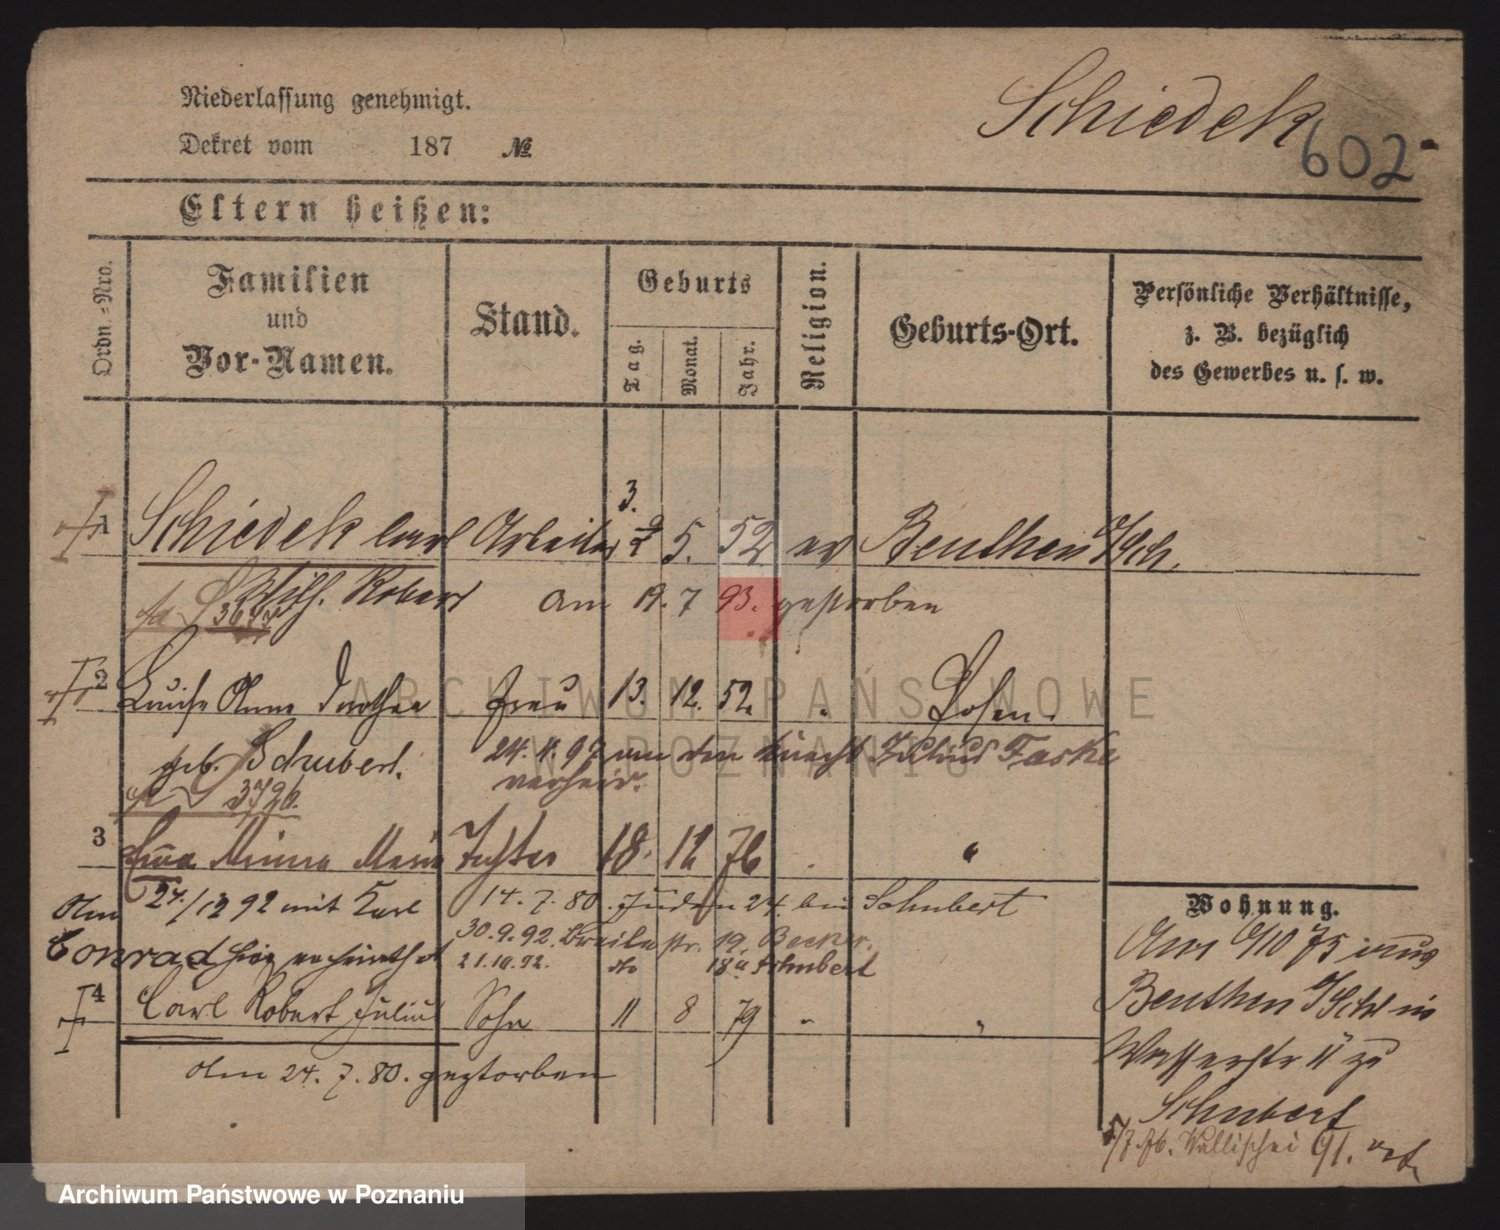 Niederlassung genehmigt.
Schiedek
602
Dekret vom 187 №
Eltern heißen:
Ordn.-Nro.
Familien und Vor-Namen.
Stand.
Geburts
Tag. Monat. Jahr.
Religion.
Geburts-Ort.
Persönliche Verhältnisse, z. B. bezüglich des Gewerbes u. s. w.
3.
1 Schiedek Carl Arbeiter 5. 52 ev Beuthen O/Sch.
Wilh. Robert am 19. 7 93. gestorben
3677
2 Luise Anna Dorothea Frau 13. 12. 52. " Posen.
geb. Schubert. 24. 4. 97 von den Knecht Julius Taske
verheir.
3796.
3 Emma Minna Maria Tochter 18. 12 76 "
Am 27/12 92 mit Karl 14. 7. 80. Juden 24. bei Schubert
Conrad hier verheirathet 30. 9. 92. Breitestr. 19. Becker.
21.10.92. do 18a Schubert
4 Carl Robert Julius Sohn 11 8 79 "
Am 24. 7. 80. gestorben
Wohnung.
Am 6/10 75 aus
Beuthen O/Schl in
Wasserstr 11 zu
Schubert
5/7. 76. Wallischei 91.
ARCHIWUM PAŃSTWOWE
W POZNANIU
Archiwum Państwowe w Poznaniu